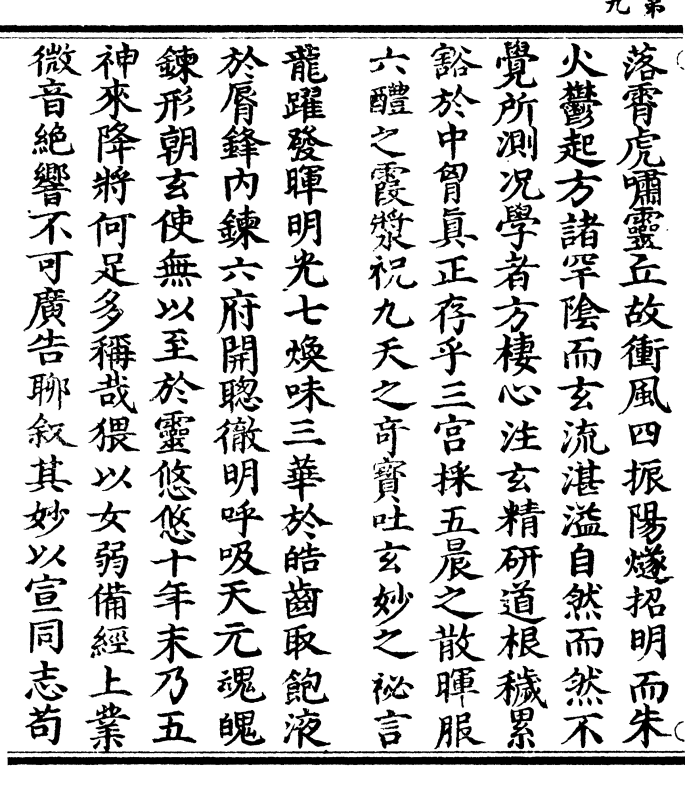 第九
落霄虎嘯靈丘故衝風四振陽燧招明而朱
火鬱起方諸罕陰而玄流湛溢自然而然不
覺所測況學者方棲心注玄精研道根穢累
豁於中胷真正存乎三宮採五晨之散暉服
六醴之霞漿祝九天之奇寶吐玄妙之祕言
龍躍發暉明光七煥味三華於皓齒取飽液
於脣鋒內鍊六府開聰徹明呼吸天元魂魄
鍊形朝玄使無以至於靈悠悠十年末乃五
神來降將何足多稱哉猥以女弱備經上業
微音絕響不可廣告聊叙其妙以宣同志苟